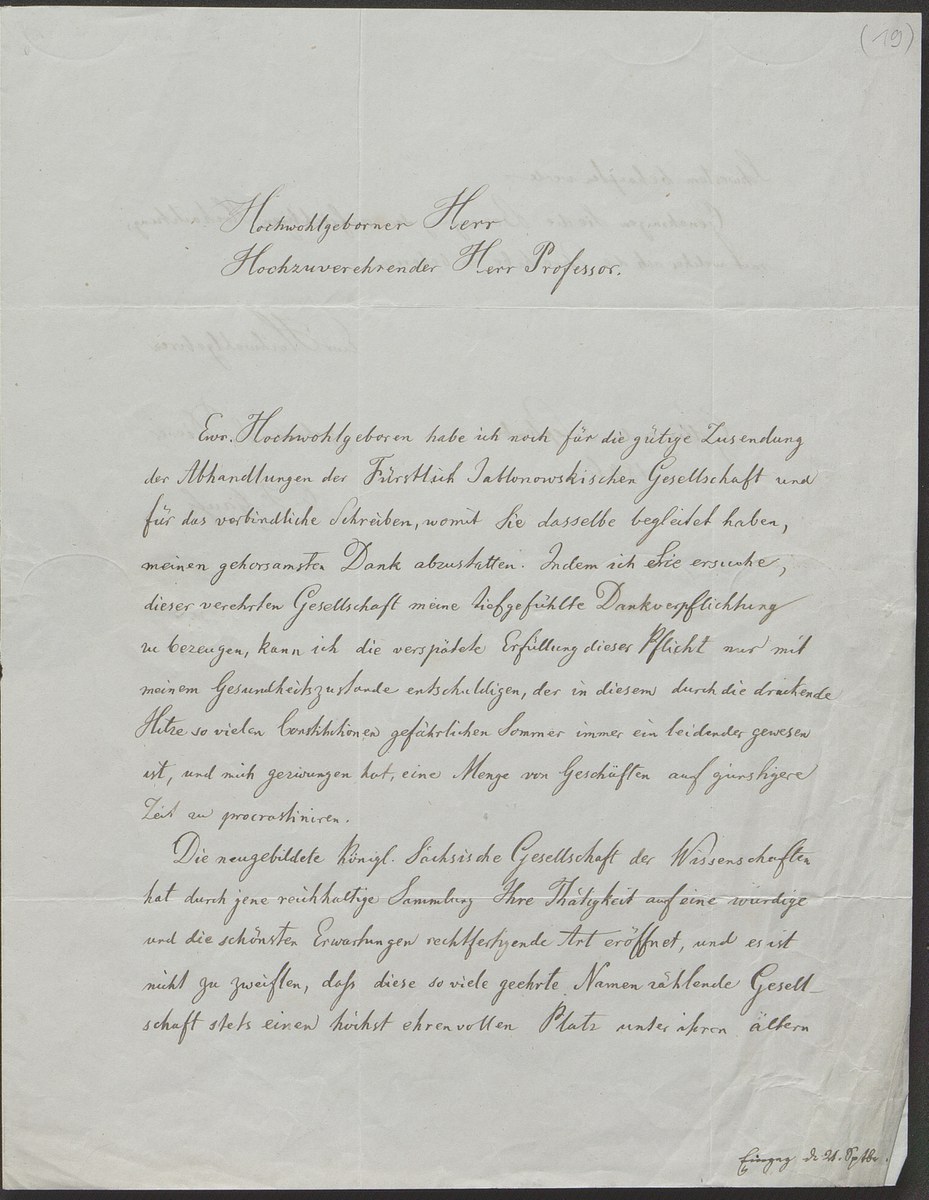 (19)
Hochwohlgeborner Herr
Hochzuverehrender Herr Professor.
Ewr. Hochwohlgeboren habe ich noch für die gütige Zusendung
der Abhandlungen der Fürstlich Jablonowskischen Gesellschaft und
für das verbindliche Schreiben, womit Sie dasselbe begleitet haben,
meinen gehorsamsten Dank abzustatten. Indem ich Sie ersuche,
dieser verehrten Gesellschaft meine tiefgefühlte Dankverpflichtung
zu bezeugen, kann ich die verspätete Erfüllung dieser Pflicht nur mit
meinem Gesundheitszustande entschuldigen, der in diesem durch die drückende
Hitze so vielen Constitutionen gefährlichen Sommer immer ein leidender gewesen
ist, und mich gezwungen hat, eine Menge von Geschäften auf günstigere
Zeit zu procrastiniren.
Die neugebildete Königl. Sächsische Gesellschaft der Wissenschaften
hat durch jene reichhaltige Sammlung Ihre Thätigkeit auf eine würdige
und die schönsten Erwartungen rechtfertigende Art eröffnet, und es ist
nicht zu zweiflen, daß diese so viele geehrte Namen zählende Gesell-
schaft stets einen höchst ehrenvollen Platz unter ihren ältern
Eingeg. d. 21. Sptbr.